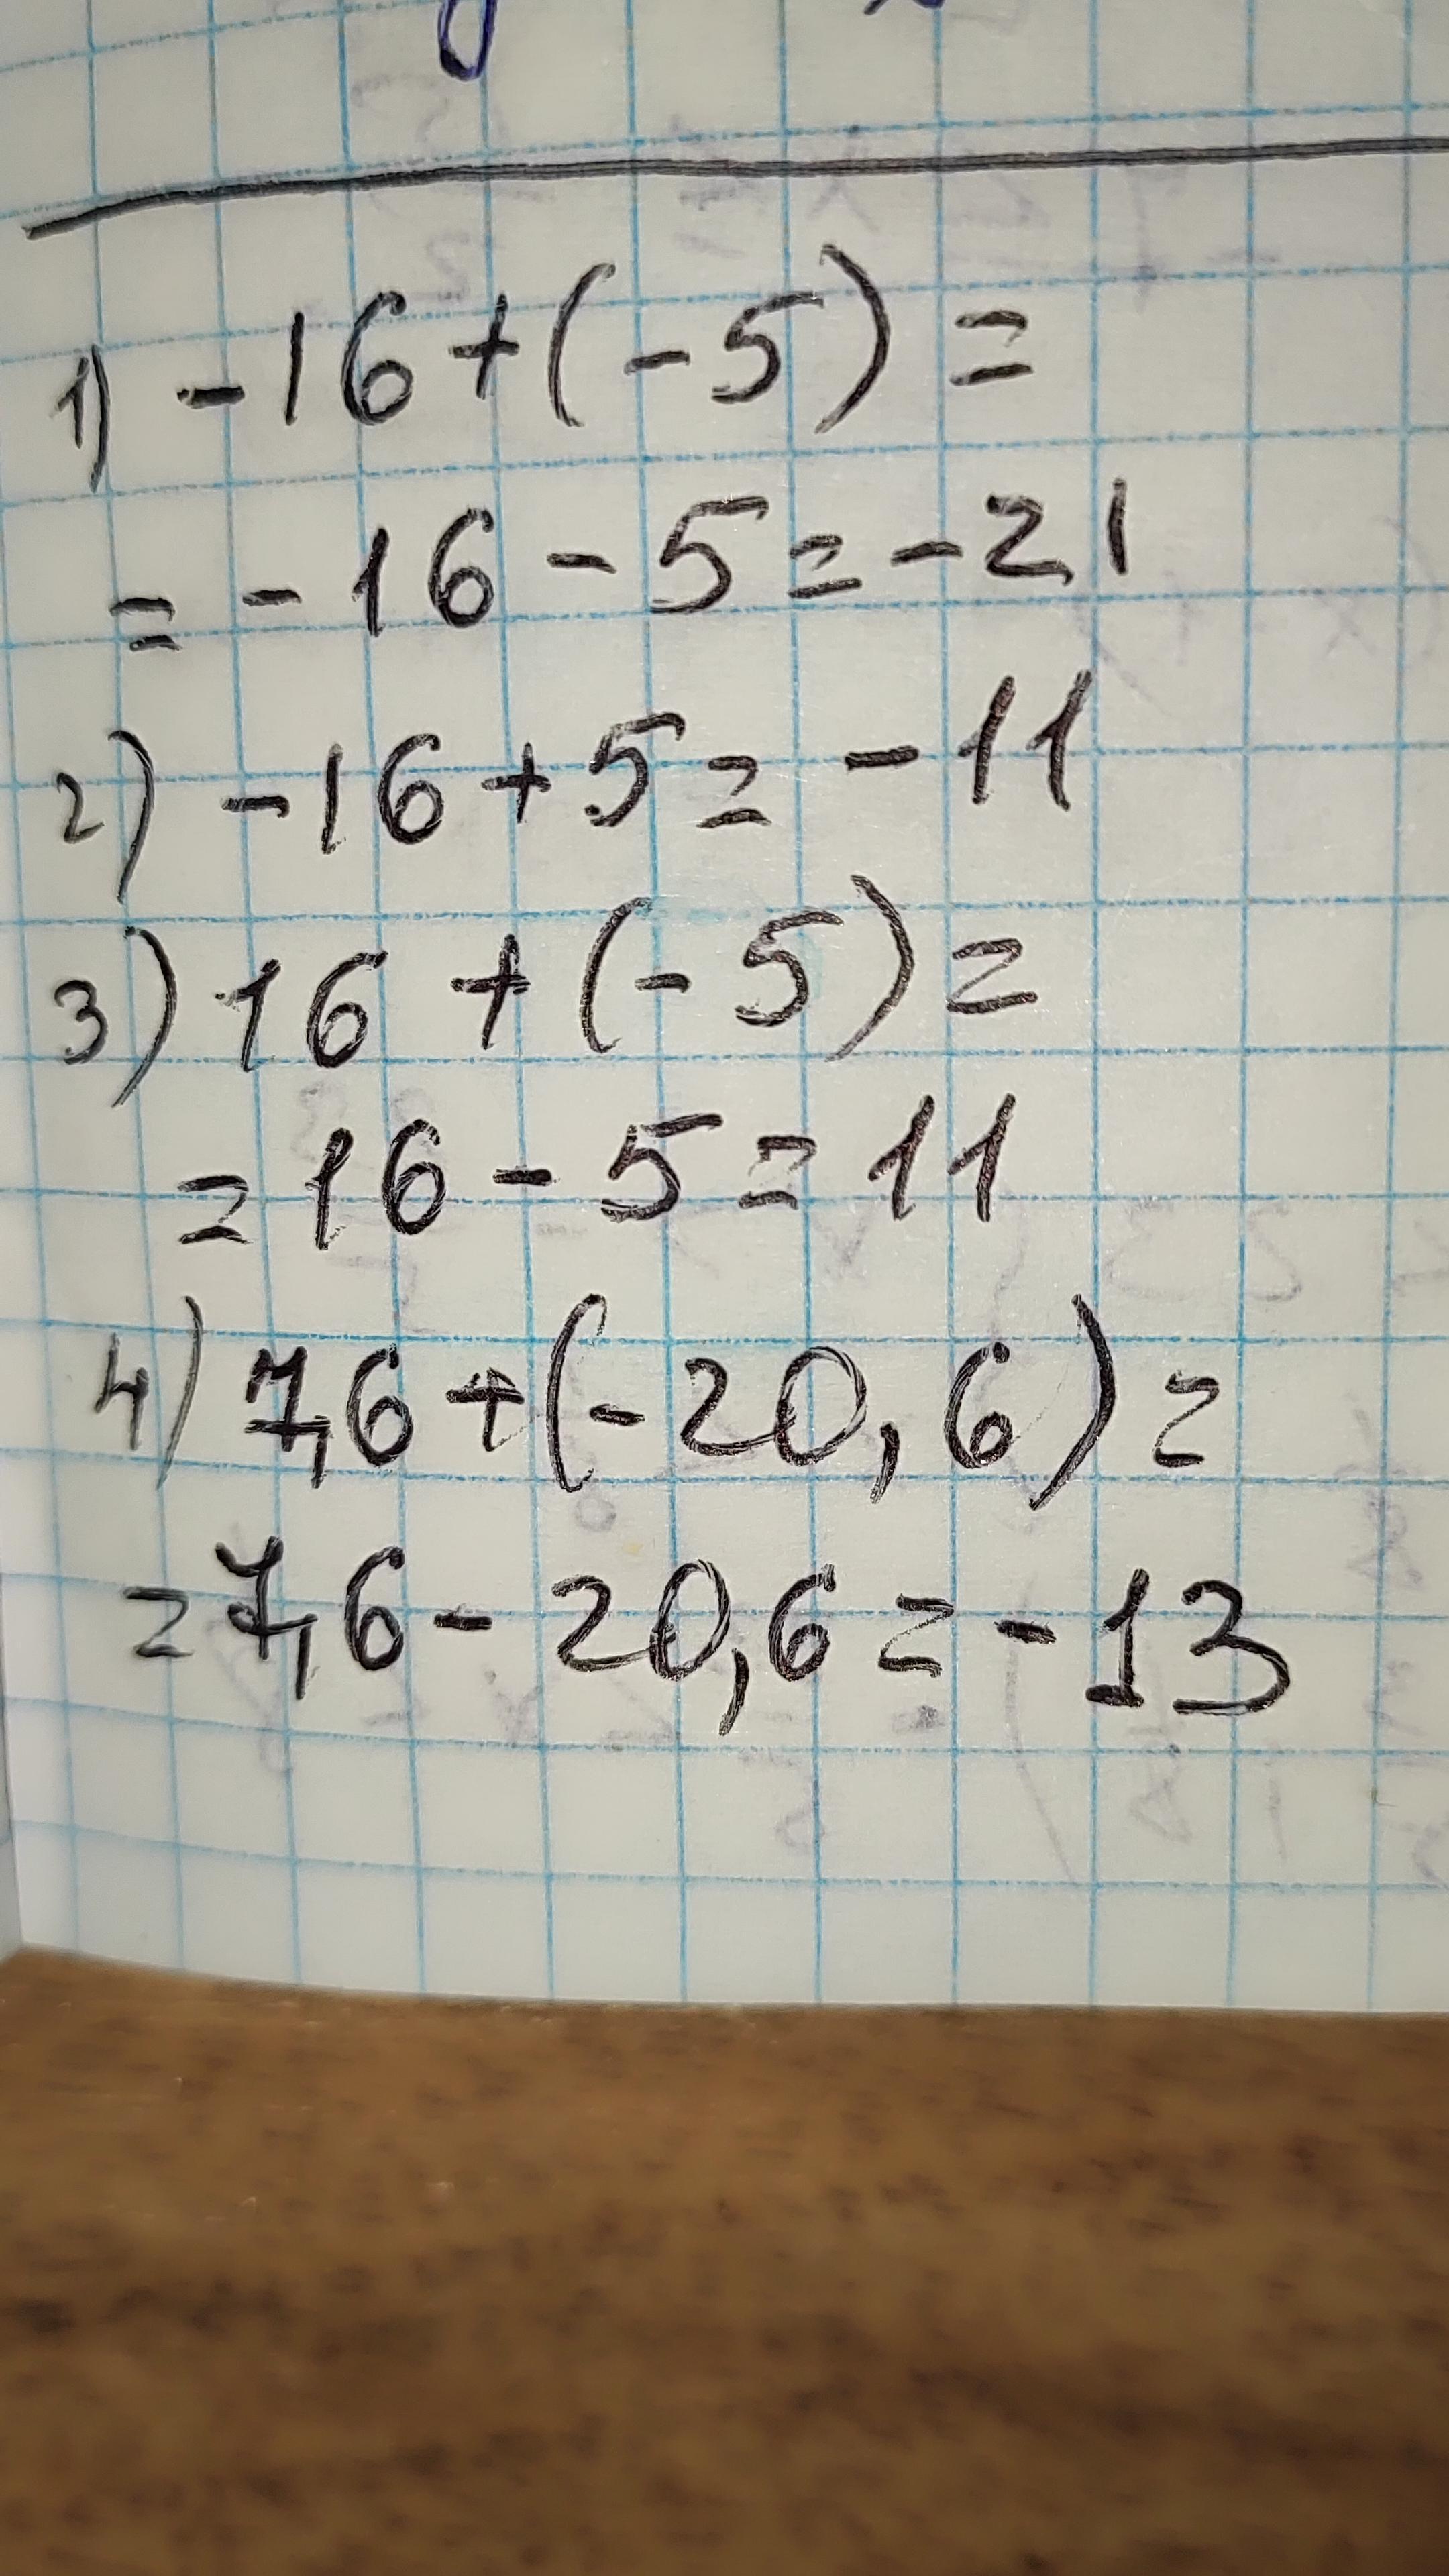 1) -16+(-5)=
=-16-5=-21
2) -16+5=-11
3) 16+(-5)=
=16-5=11
4) 7,6+(-20,6)=
=7,6-20,6=-13